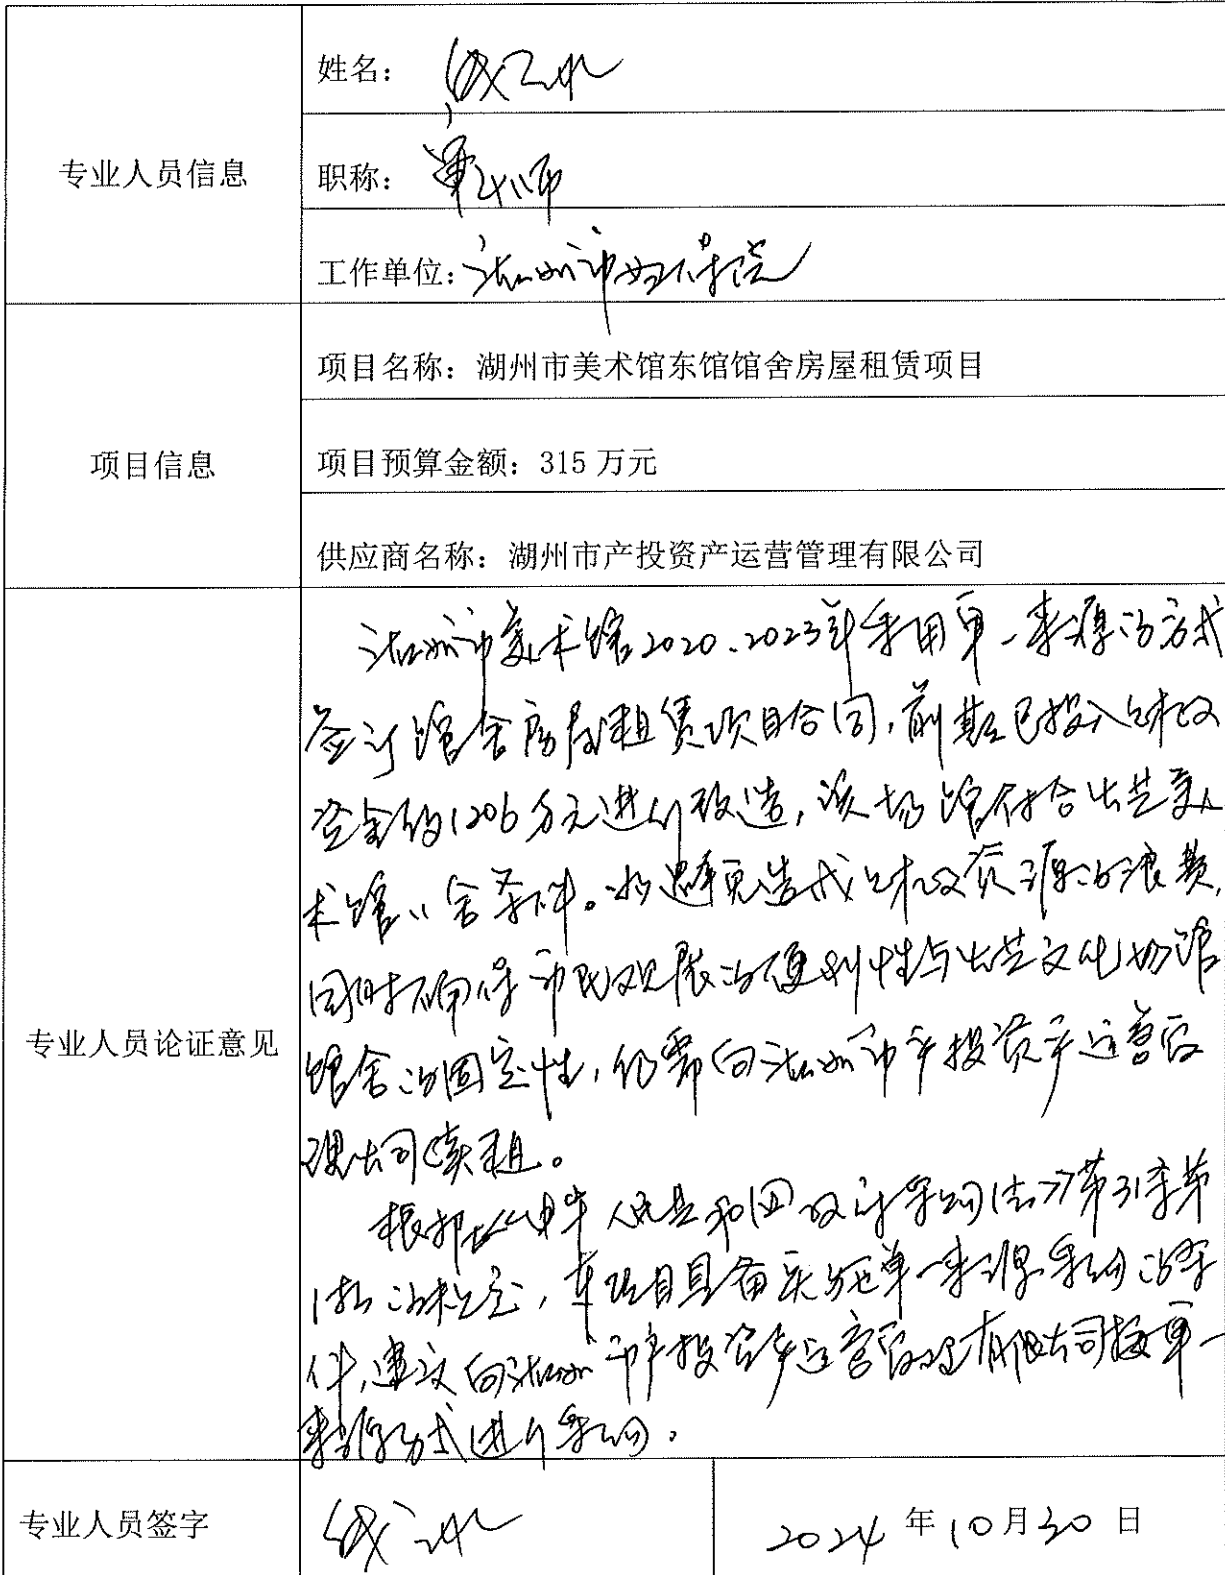 专业人员信息
姓名：
职称：
工作单位：湖州市妇保院
项目信息
项目名称：湖州市美术馆东馆馆舍房屋租赁项目
项目预算金额：315 万元
供应商名称：湖州市产投资产运营管理有限公司
专业人员论证意见
湖州市美术馆2020、2023年采用单一来源的方式
签订馆舍房屋租赁项目合同，前期已投入财政
资金约1206万元进行改造，该场馆符合公共美
术馆馆舍条件。为避免造成财政资源的浪费，
同时确保市民观展的便利性与公共文化场馆
馆舍的固定性，仍需向湖州市产投资产运营管
理公司续租。
根据《中华人民共和国政府采购法》第31条第
1款的规定，本项目具备实施单一来源采购的条
件，建议向湖州市产投资产运营管理有限公司按单一
来源方式进行采购。
专业人员签字
2024 年 10 月 30 日